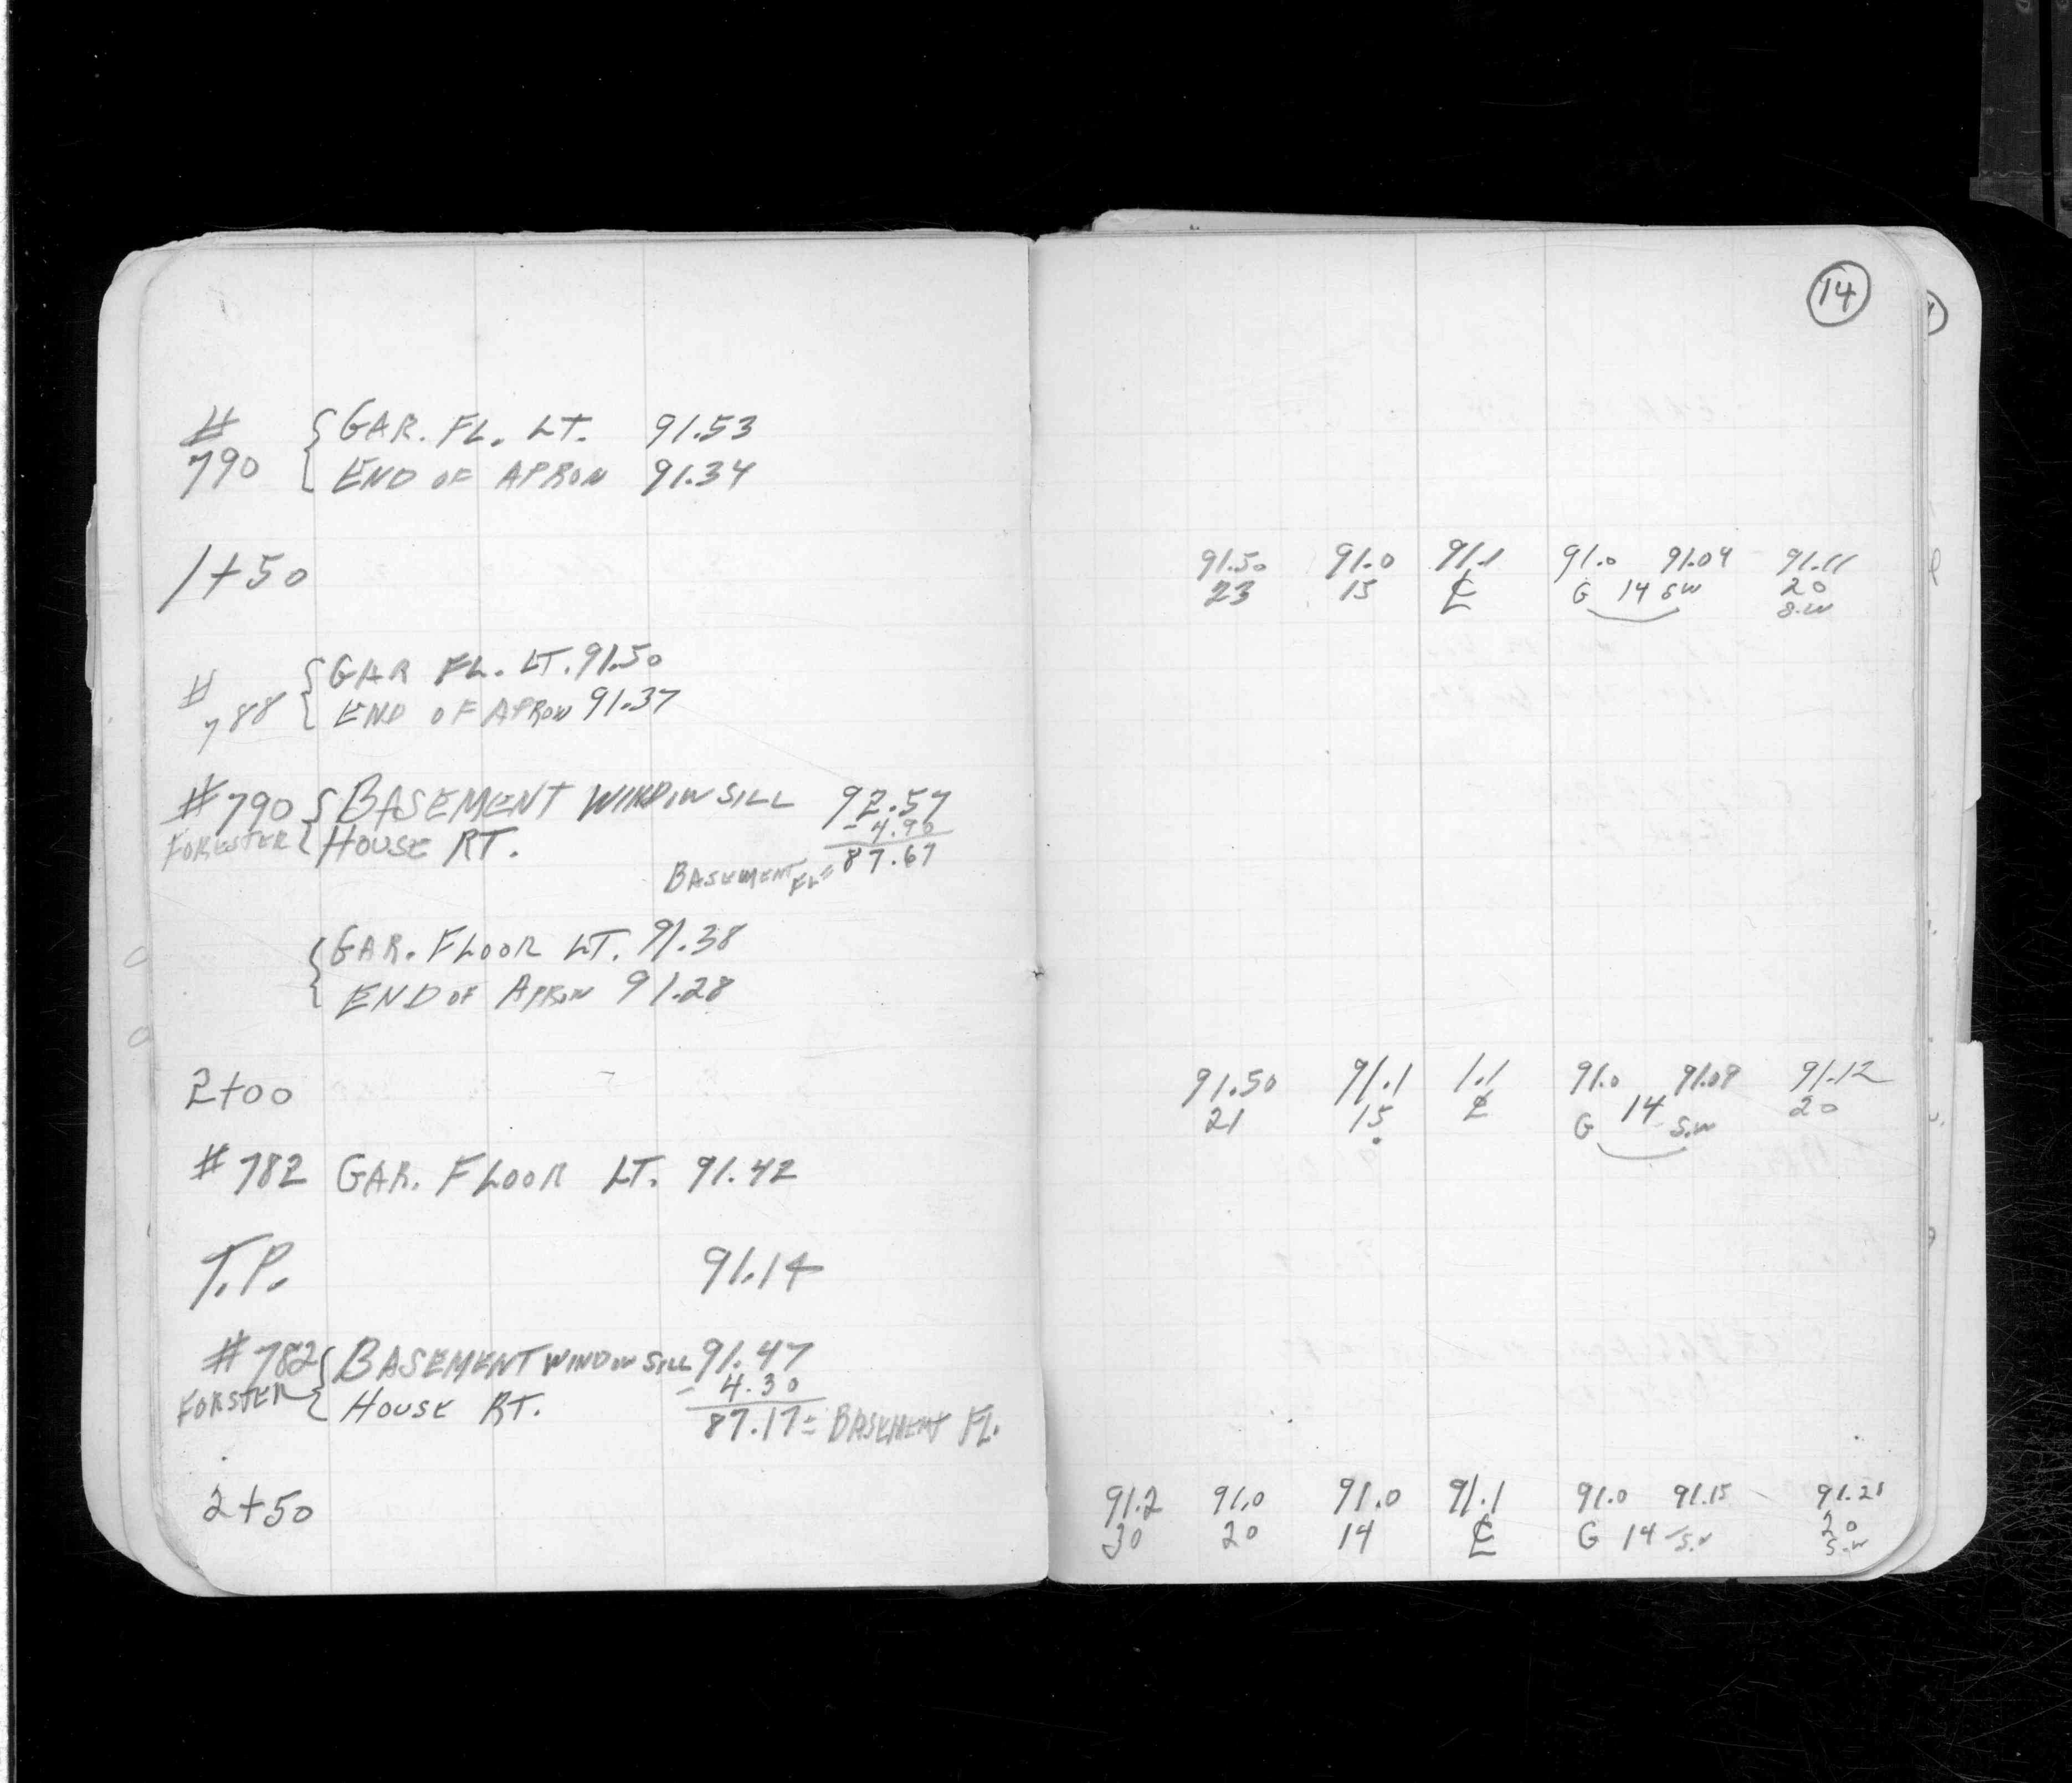 14
#
790 { GAR. FL. LT. 91.53
END OF APRON 91.34
1+50
91.50 91.0 91.1 91.0 91.09 91.11
23 15 ℄ G 14 SW 20
S.W
# 788 { GAR FL. LT. 91.50
END OF APRON 91.37
#790 { BASEMENT WINDOW SILL 92.57
FORESTER HOUSE RT. - 4.90
BASEMENT FL= 87.67
{ GAR. FLOOR LT. 91.38
END OF APRON 91.28
2+00
91.50 91.1 1.1 91.0 91.09 91.12
21 15 ℄ G 14 S.W 20
#782 GAR. FLOOR LT. 91.42
T.P. 91.14
#782 { BASEMENT WINDOW SILL 91.47
FORSTER HOUSE RT. - 4.30
87.17 = BASEMENT FL.
2+50
91.2 91.0 91.0 91.1 91.0 91.15 91.21
30 20 14 ℄ G 14 S.W 20
S.W